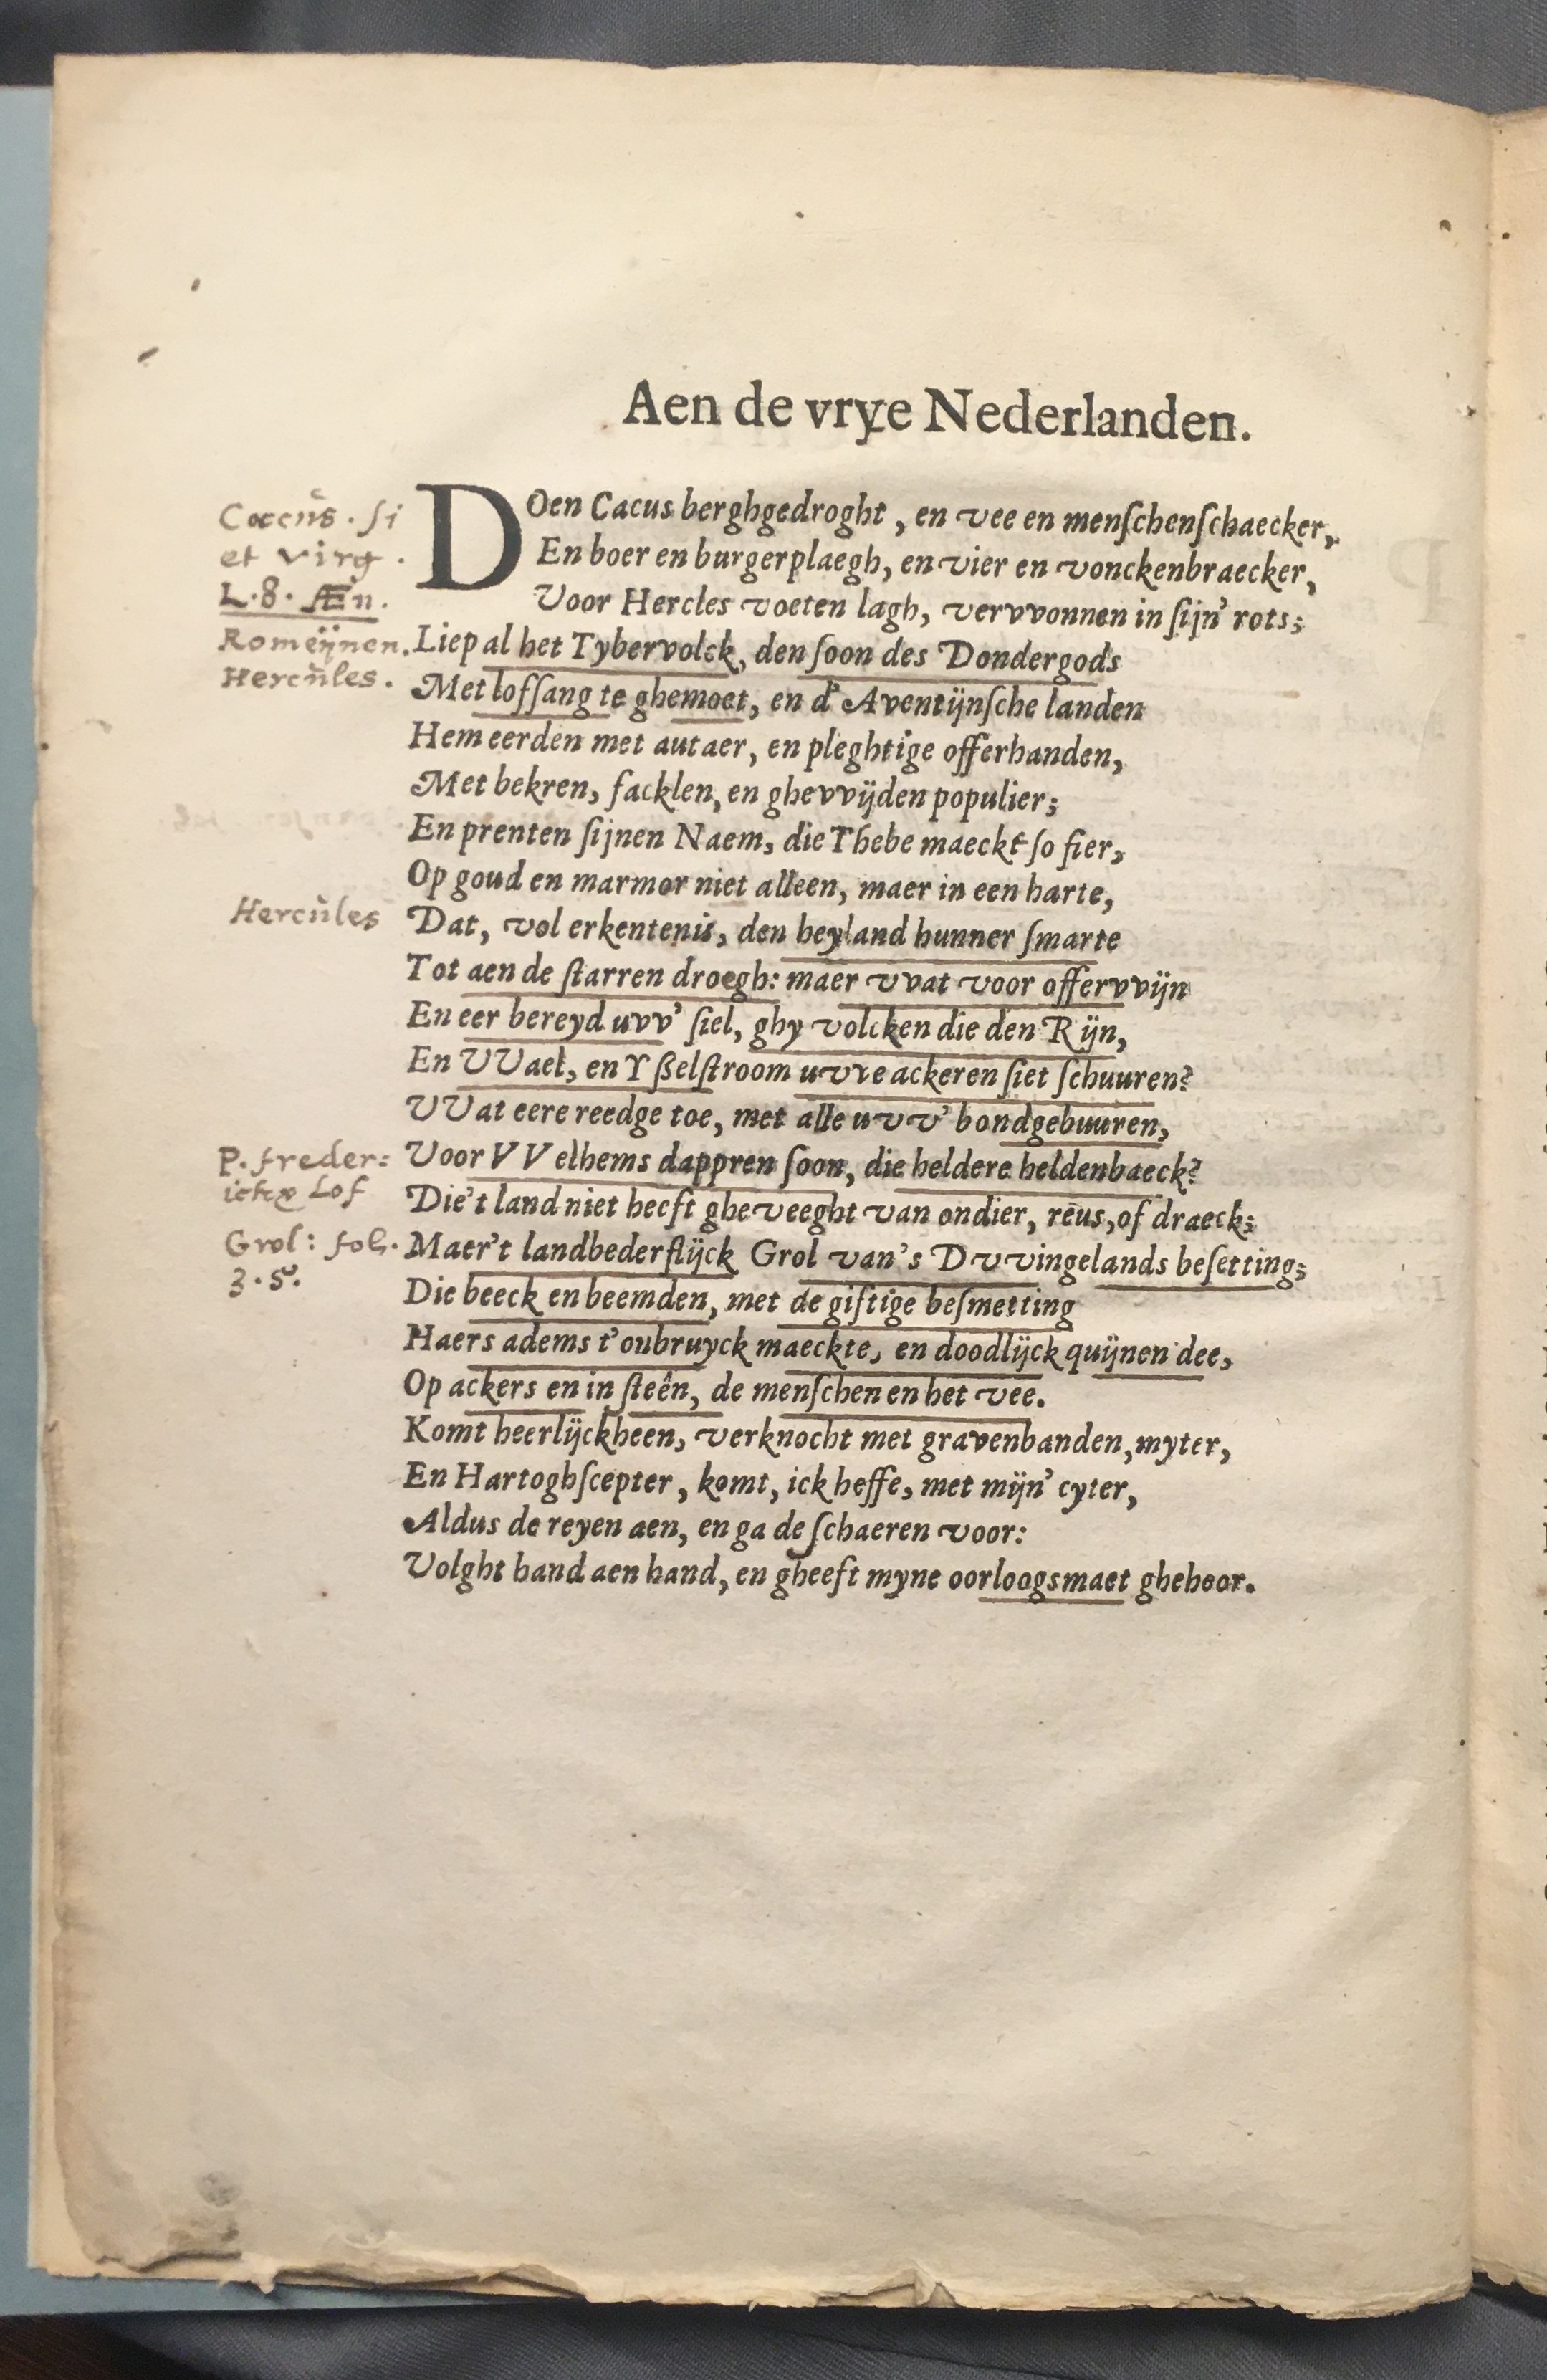 Aen de vrye Nederlanden.
DOen Cacus berghgedroght, en vee en menſchenſchaecker,
En boer en burgerplaegh, en vier en vonckenbraecker,
Voor Hercles voeten lagh, vervvonnen in ſijn' rots;
Liep al het Tybervolck, den ſoon des Dondergods
Met lofſang te ghemoet, en d' Aventijnſche landen
Hem eerden met autaer, en pleghtige offerhanden,
Met bekren, facklen, en ghevvijden populier;
En prenten ſijnen Naem, die Thebe maeckt ſo fier,
Op goud en marmor niet alleen, maer in een harte,
Dat, vol erkentenis, den heyland hunner ſmarte
Tot aen de ſtarren droegh: maer vvat voor offervvijn
En eer bereyd uvv' ſiel, ghy volcken die den Rijn,
En VVael, en Yßelſtroom uvre ackeren ſiet ſchuuren?
VVat eere reedge toe, met alle uvv' bondgebuuren,
Voor VVelhems dappren ſoon, die heldere heldenbaeck?
Die't land niet heeft gheveeght van ondier, reus, of draeck;
Maer't landbederflijck Grol van's Dvvingelands beſetting;
Die beeck en beemden, met de giftige beſmetting
Haers adems t'onbruyck maeckte, en doodlijck quijnen dee,
Op ackers en in ſteên, de menſchen en het vee.
Komt heerlijckheen, verknocht met gravenbanden, myter,
En Hartoghſcepter, komt, ick heffe, met mijn' cyter,
Aldus de reyen aen, en ga de ſchaeren voor:
Volght hand aen hand, en gheeft myne oorloogsmaet ghehoor.
et virg.
L.8. Æn.
Romeijnen.
Hercules.
Hercules
P. freder=
Lof
Grol: fol.